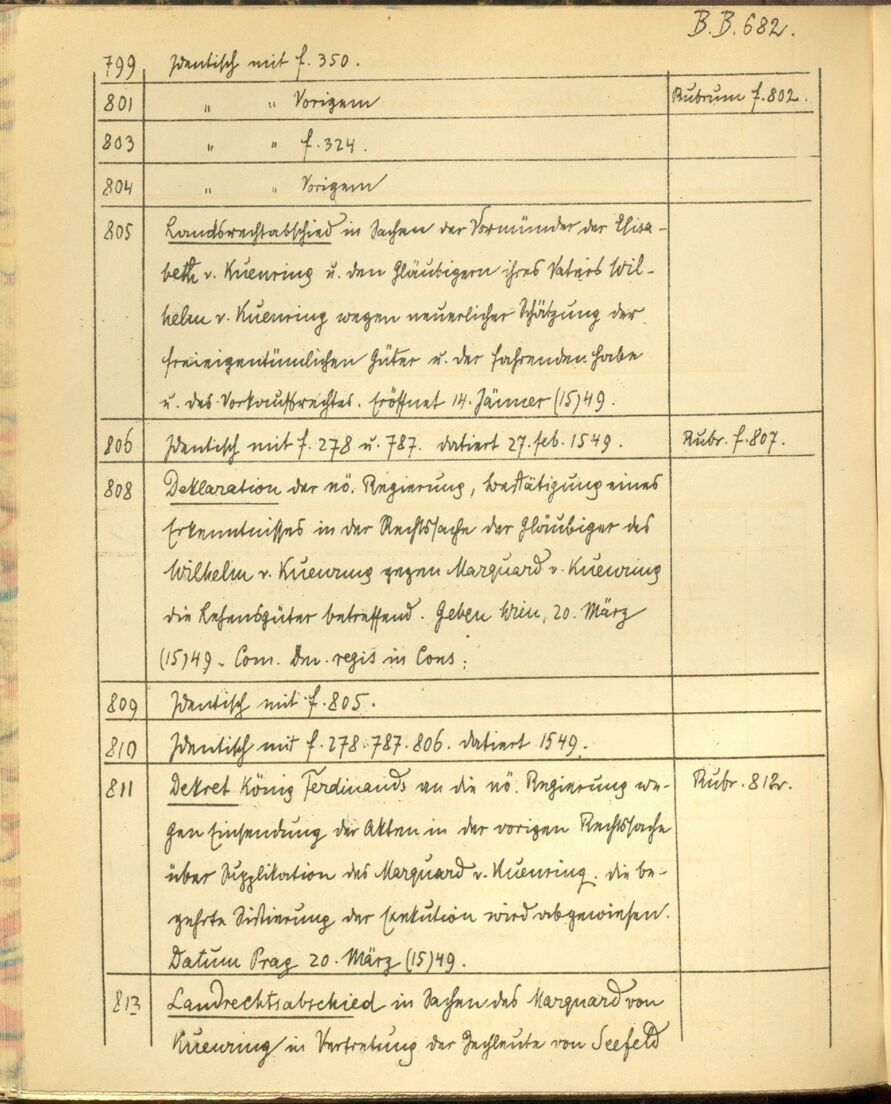 B.B. 682.
799 Identisch mit f. 350.
801 " " Vorigem Rubrum f. 802.
803 " " f. 324.
804 " " Vorigem
805 Landsrechtabschied in Sachen der Vormünder der Elisa-
beth v. Kuenring u. den Gläubigern ihres Vaters Wil-
helm v. Kuenring wegen neuerlicher Schätzung der
freieigentümlichen Güter u. der fahrenden Habe
u. des Vorkaufsrechtes. Eröffnet 14. Jänner (15)49.
806 Identisch mit f. 278 u. 787. datiert 27. Feb. 1549. Rubr. f. 807.
808 Deklaration der nö. Regierung, Bestätigung eines
Erkenntnisses in der Rechtssache der Gläubiger des
Wilhelm v. Kuenring gegen Marquard v. Kuenring
die Lehensgüter betreffend. Geben Wien, 20. März
(15)49. Com. Dm. regis in Cons:
809 Identisch mit f. 805.
810 Identisch mit f. 278. 787. 806. datiert 1549.
811 Dekret König Ferdinands an die nö. Regierung we- Rubr. 812v.
gen Einsendung der Akten in der vorigen Rechtssache
über Supplikation des Marquard v. Kuenring. die be-
gehrte Sistierung der Exekution wird abgewiesen.
Datum Prag 20. März (15)49.
813 Landrechtsabschied in Sachen des Marquard von
Kuenring in Vertretung der Zechleute von Seefeld